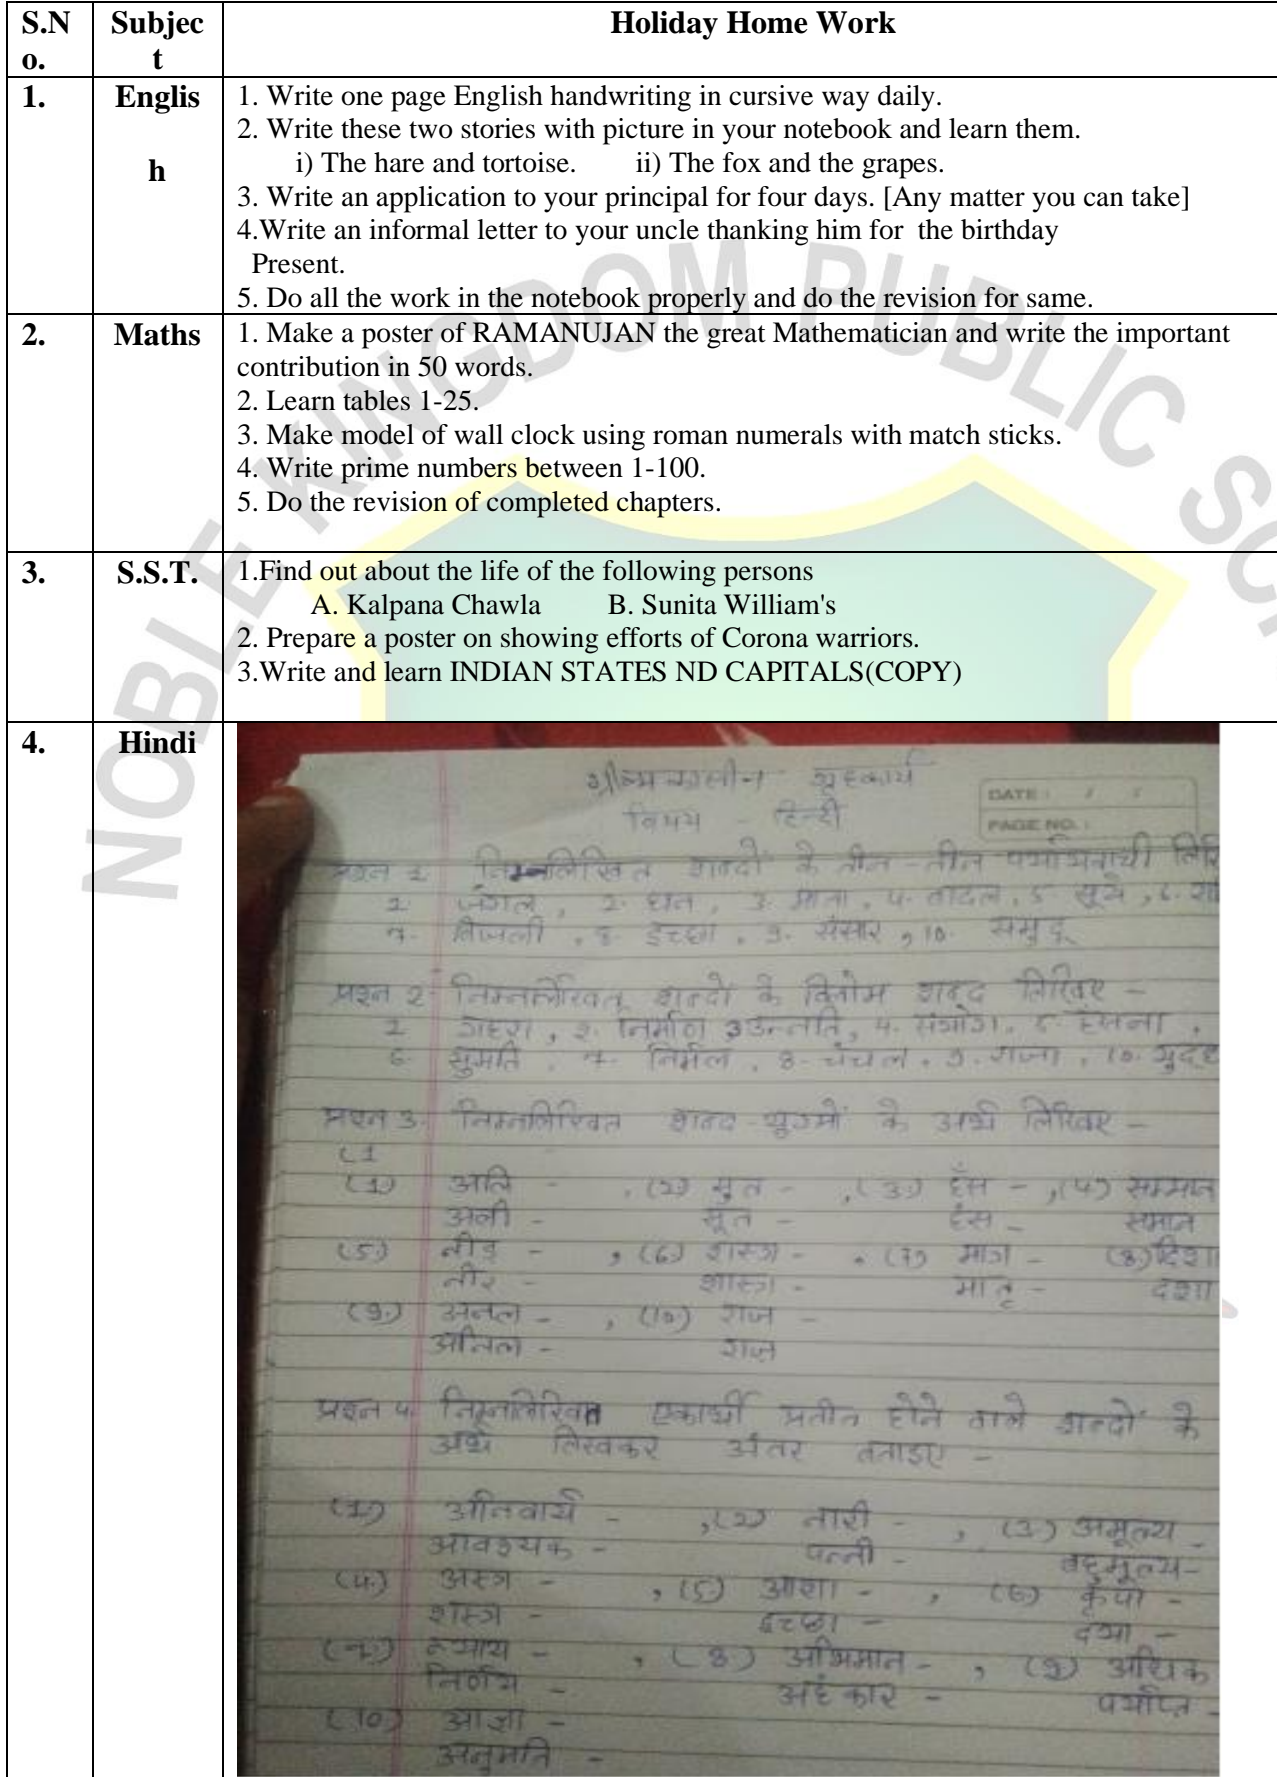 S.No. Subject Holiday Home Work
1. English 1. Write one page English handwriting in cursive way daily.
2. Write these two stories with picture in your notebook and learn them.
i) The hare and tortoise. ii) The fox and the grapes.
3. Write an application to your principal for four days. [Any matter you can take]
4.Write an informal letter to your uncle thanking him for the birthday
Present.
5. Do all the work in the notebook properly and do the revision for same.
2. Maths 1. Make a poster of RAMANUJAN the great Mathematician and write the important
contribution in 50 words.
2. Learn tables 1-25.
3. Make model of wall clock using roman numerals with match sticks.
4. Write prime numbers between 1-100.
5. Do the revision of completed chapters.
3. S.S.T. 1.Find out about the life of the following persons
A. Kalpana Chawla B. Sunita William's
2. Prepare a poster on showing efforts of Corona warriors.
3.Write and learn INDIAN STATES ND CAPITALS(COPY)
4. Hindi
ग्रीष्मकालीन गृहकार्य
DATE : / /
विषय - हिन्दी
PAGE NO. :
प्रश्न 1 निम्नलिखित शब्दों के तीन-तीन पर्यायवाची
1. जंगल, 2. धन, 3. माता, 4. बादल, 5. सूर्य, 6.
7. बिजली, 8. इच्छा, 9. संसार, 10. समुद्र
प्रश्न 2 निम्नलिखित शब्दों के विलोम शब्द लिखिए -
1 गहरा, 2. निर्माण 3 उन्नति, 4. संयोग, 5.
6. सुमति, 7. निर्मल, 8. चंचल, 9. राजा, 10.
प्रश्न 3. निम्नलिखित शब्द-युग्मों के अर्थ लिखिए -
(1
(1) अलि - , (2) सुत - , (3) हँस - , (4) सम्मान
अली - सूत - हंस - समान
(5) नीड़ - , (6) शस्त्र - , (7) मात्र - (8) दिशा
नीर - शास्त्र - मातृ - दशा
(9) अनल - , (10) राज -
अनिल - राज़
प्रश्न 4. निम्नलिखित एकार्थी प्रतीत होने वाले शब्दों के
अर्थ लिखकर अंतर बताइए -
(1) अनिवार्य - , (2) नारी - , (3) अमूल्य -
आवश्यक - पत्नी - बहुमूल्य-
(4) अस्त्र - , (5) आशा - , (6) कृपा -
शस्त्र - इच्छा - दया -
(7) न्याय - , (8) अभिमान - , (9) अधिक
निर्णय - अहंकार - पर्याप्त -
(10) आज्ञा -
अनुमति -
NOBLE KINGDOM PUBLIC